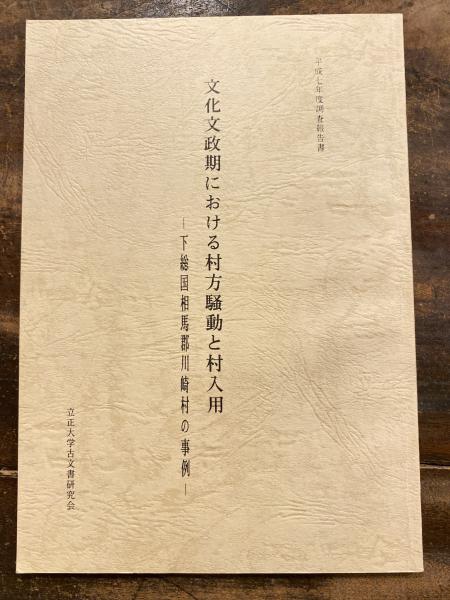 平成七年度調査報告書
文化文政期における村方騒動と村入用
―下総国相馬郡川崎村の事例―
立正大学古文書研究会